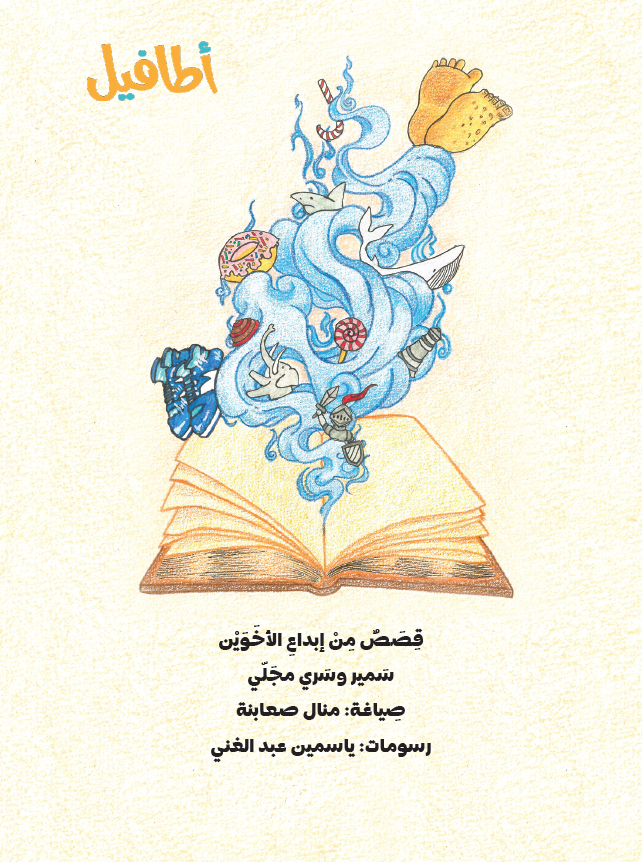 أطافيل
قِصَصٌ مِنْ إبداعِ الأخَوَيْن
سَمير وسَري مجَلّي
صِياغة: منال صعابنة
رسومات: ياسمين عبد الغني